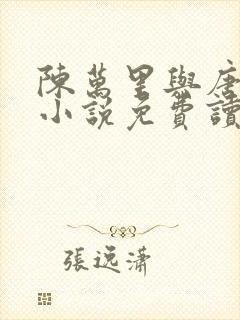 陳萬里與唐
小說免費讀
張逸瀟